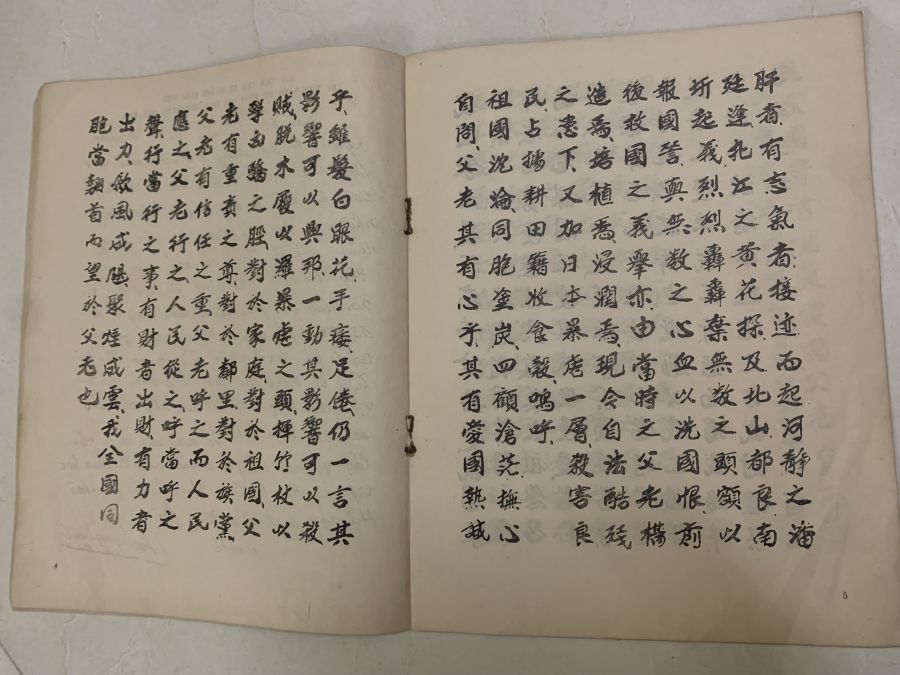 肝者、有志氣者、接迹而起、河靜之潘
廷逢、乳江之黃花探、及北山都良南
圻起義、烈烈轟轟、棄無数之頭顱以
報國讐、與無数之心血以洗國恨、前
後救國之義舉、亦由當時之父老構
造焉、培植焉、浸潤焉、現今自法酷殘
之下、又加日本暴虐一層、殺害良
民、占據耕田、籍收食穀、嗚呼、
祖國沈淪、同胞塗炭、四顧滄茫、撫心
自問、父老其有心乎、其有愛國熱誠
5
乎、雖髮白眼花、手痿足倦、仍一言其
影響可以興邦、一動其影響可以殺
賊、脫木屐以暴虐之頭、揮竹杖以
擊之脛、對於家庭、對於祖國、父
老有重責之尊、對於鄰里、對於族黨、
父老有信任之重、父老呼之而人民
應之、父老行之、人民從之、呼當呼之
聲、行當行之事、有財者出財、有力者
出力、風成颶、聚煙成雲、我全國同
胞當翹首而望於父老也
4